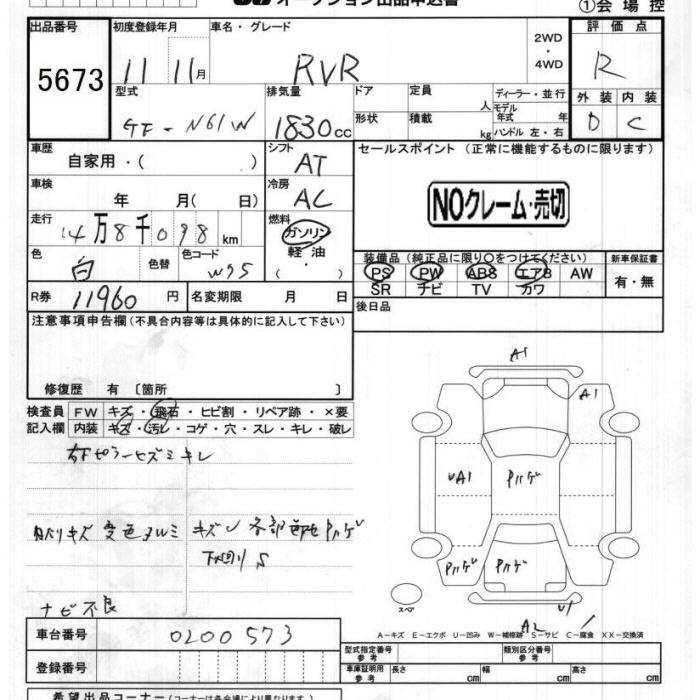 オークション出品申込書 ①会場控
出品番号 初度登録年月 車名・グレード 2WD 評価点
5673 11 11月 RVR ・4WD R
型式 排気量 ドア 定員 ディーラー・並行 外装 内装
GF-N61W 1830cc 人 モデル年式 年 D C
形状 積載 kg ハンドル 左・右
車歴 シフト セールスポイント(正常に機能するものに限ります)
自家用・( ) AT
車検 冷房
年 月( 日) AC NOクレーム・売切
走行 燃料
14万8千098km ガソリン
軽油
・( )
色 色替 色コード 装備品(純正品に限り○をつけてください) 新車保証書
白 W95 PS PW ABS エアB AW 有・無
SR ナビ TV カワ
R券 11960円 名変期限 月 日 後日品
注意事項申告欄(不具合内容等は具体的に記入して下さい)
修復歴 有〔箇所 〕
検査員 FW キズ・飛石・ヒビ割・リペア跡・×要
記入欄 内装 キズ・汚レ・コゲ・穴・スレ・キレ・破レ
A1
A1
UA1 Pハゲ
Pハゲ Pハゲ
キズ 変色 タルミ キズU 各部 Pハゲ
下回りS
スペア U1
ナビ不良 A2
A-キズ E-エクボ U-凹み W-補修跡 S-サビ C-腐食 XX-交換済
車台番号 0200573
型式指定番号 参考 類別区分番号 参考
登録番号 車庫証明用 参考 長さ cm 幅 cm 高さ cm
希望出品コーナー(コーナーは各会場により異なります)